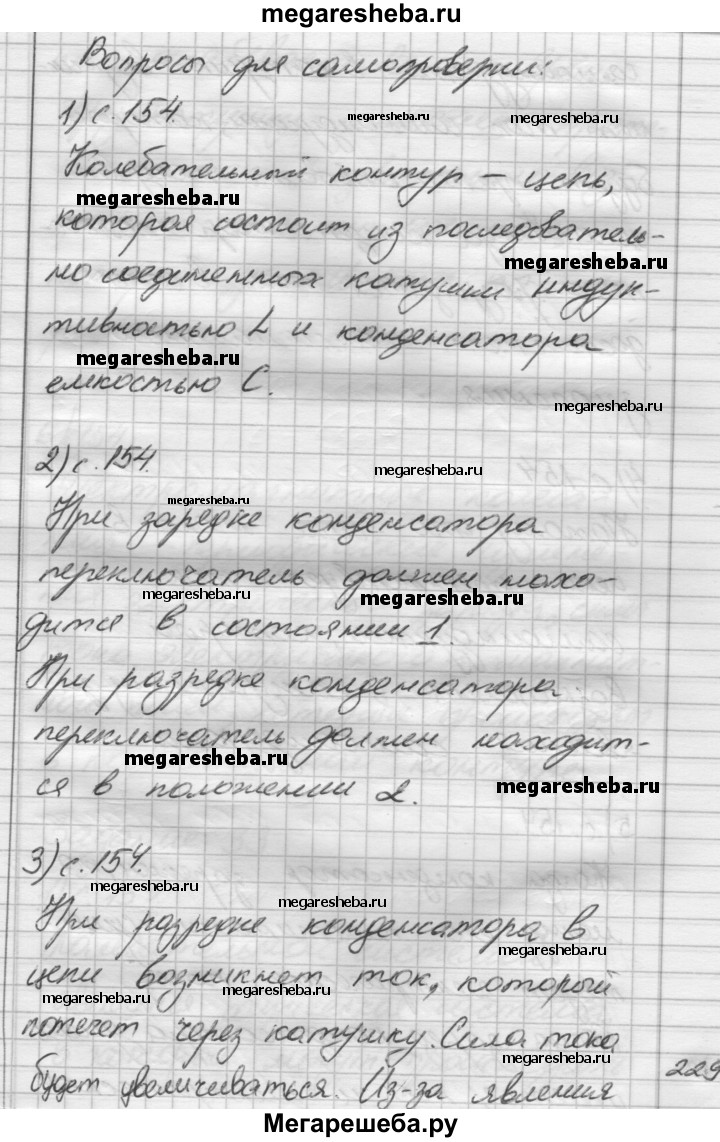 megaresheba.ru
Вопросы для самопроверки:
1) с. 154.
megaresheba.ru megaresheba.ru
Колебательный контур – цепь,
megaresheba.ru
которая состоит из последователь-
megaresheba.ru
но соединенных катушки индук-
тивностью L и конденсатора
megaresheba.ru
емкостью C.
megaresheba.ru
2) с. 154.
megaresheba.ru
megaresheba.ru
При зарядке конденсатора
переключатель должен нахо-
megaresheba.ru megaresheba.ru
дится в состоянии 1.
При разрядке конденсатора
переключатель должен находит-
megaresheba.ru
ся в положении 2.
megaresheba.ru
3) с. 154.
megaresheba.ru
megaresheba.ru
При разрядке конденсатора в
megaresheba.ru
цепи возникнет ток, который
megaresheba.ru megaresheba.ru
потечет через катушку. Сила тока
megaresheba.ru
будет увеличиваться. Из-за явления
229
Мегарешеба.ру